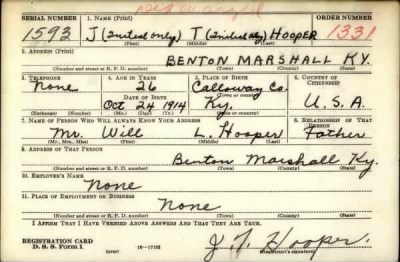 SERIAL NUMBER 1. NAME (Print) ORDER NUMBER
1593 J (Initial only) T (Initial only) HOOPER 1331
(First) (Middle) (Last)
2. ADDRESS (Print)
BENTON MARSHALL KY.
(Number and street or R. F. D. number) (Town) (County) (State)
3. TELEPHONE 4. AGE IN YEARS 5. PLACE OF BIRTH 6. COUNTRY OF CITIZENSHIP
None 26 Calloway Co.
DATE OF BIRTH (Town or county)
Oct 24 1914 Ky. U.S.A.
(Exchange) (Number) (Mo.) (Day) (Yr.) (State or country)
7. NAME OF PERSON WHO WILL ALWAYS KNOW YOUR ADDRESS 8. RELATIONSHIP OF THAT PERSON
Mr. Will L. Hooper Father
(Mr., Mrs., Miss) (First) (Middle) (Last)
9. ADDRESS OF THAT PERSON
Benton Marshall Ky.
(Number and street or R. F. D. number) (Town) (County) (State)
10. EMPLOYER'S NAME
None
11. PLACE OF EMPLOYMENT OR BUSINESS
None
(Number and street or R. F. D. number) (Town) (County) (State)
I AFFIRM THAT I HAVE VERIFIED ABOVE ANSWERS AND THAT THEY ARE TRUE.
REGISTRATION CARD
D. S. S. Form 1 (over) 16-17105 J. T. Hooper
(Registrant's signature)